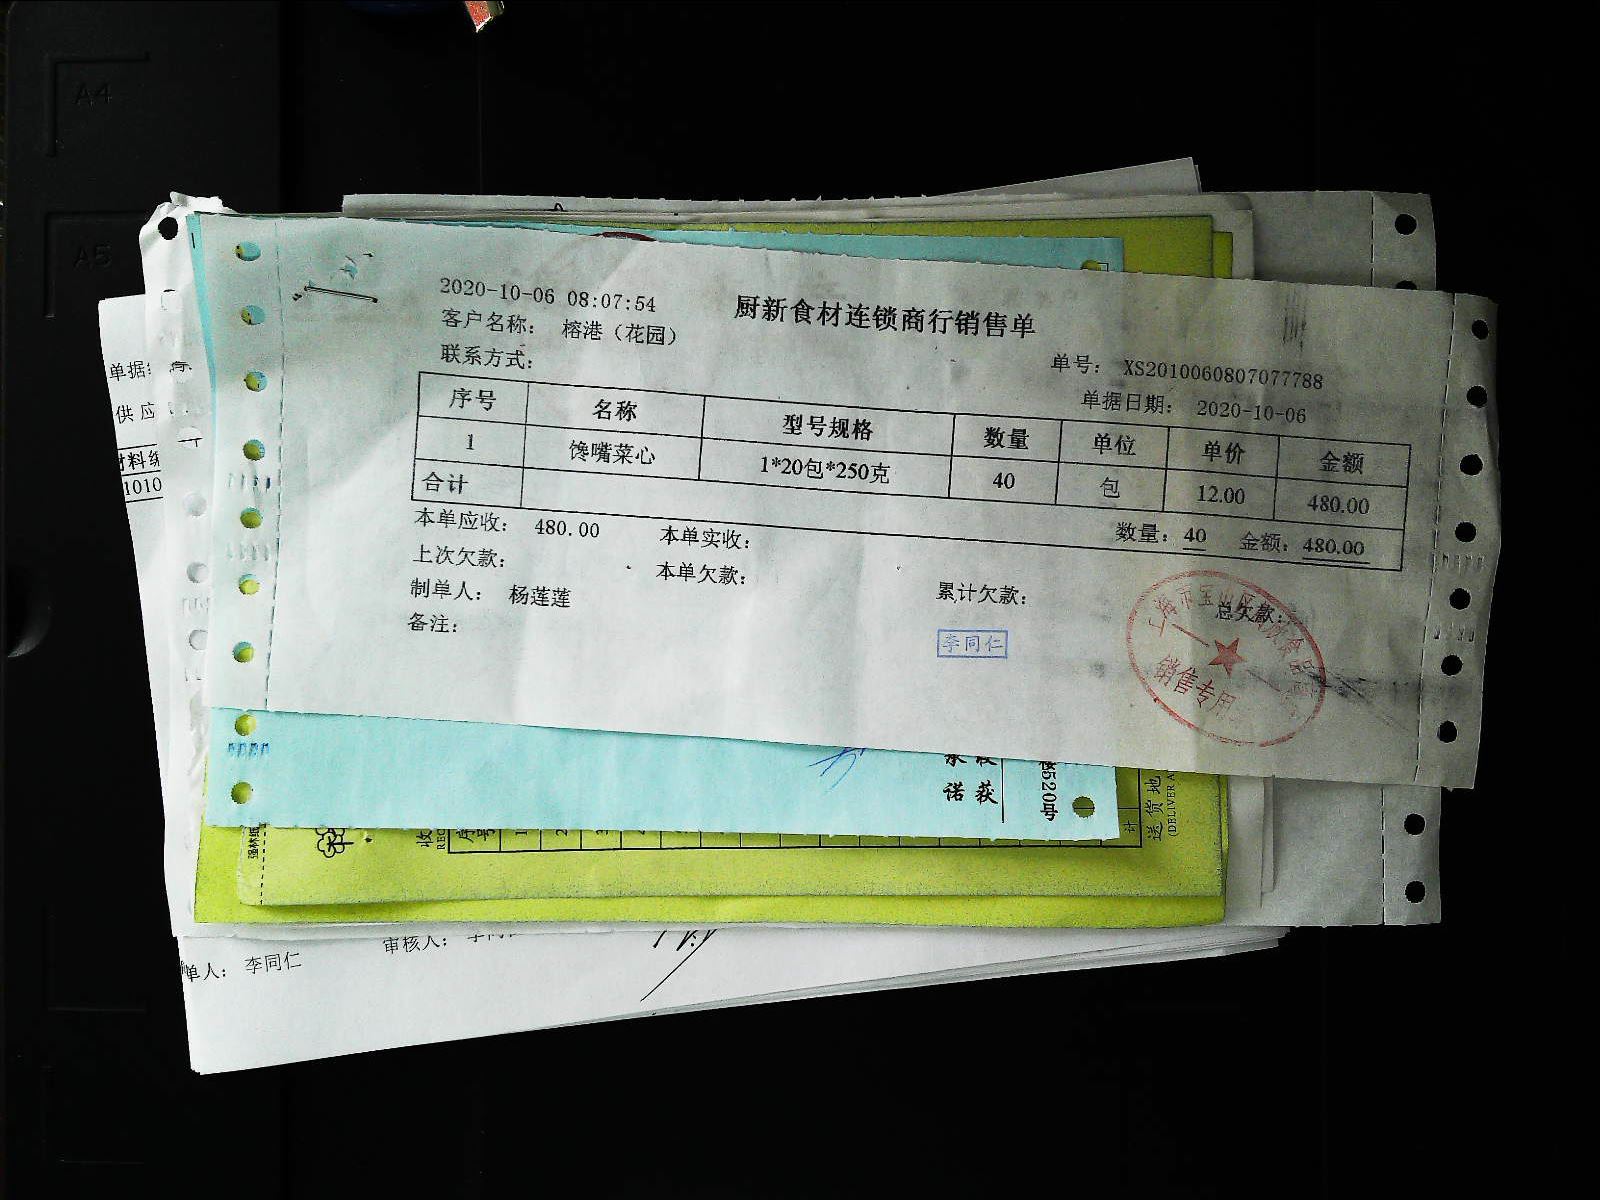 A4
A5
2020-10-06 08:07:54
厨新食材连锁商行销售单
客户名称： 榕港（花园）
联系方式：
单号： XS2010060807077788
单据日期： 2020-10-06
序号 名称 型号规格 数量 单位 单价 金额
1 馋嘴菜心 1*20包*250克 40 包 12.00 480.00
合计 数量：40 金额：480.00
本单应收： 480.00 本单实收：
上次欠款： 本单欠款： 累计欠款： 总欠款：
制单人： 杨莲莲
备注：
李同仁
上海市宝山区 食品
销售专用
单据
供应
材料编
1010
诺 获
楼520号
收
序号
1
2
3
计
送货地
(DELIVER A
单人： 李同仁
审核人：